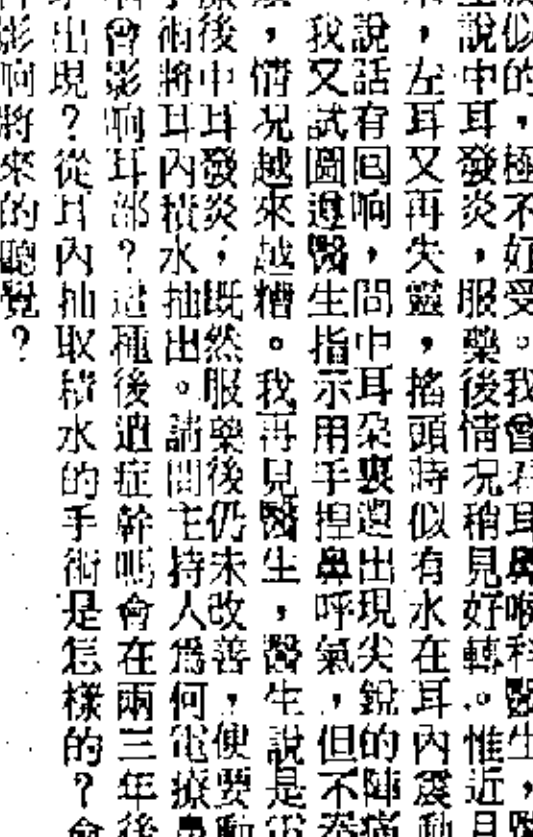 似的，極不好受。我曾看耳鼻喉科醫生，醫
說中耳發炎，服藥後情況稍見好轉。惟近月
，左耳又再失靈，搖頭時似有水在耳內震動
說話有回响，間中耳朵裏還出現尖銳的陣痛
我又試圖遵醫生指示用手揑鼻呼氣，但不奏
，情況越來越糟。我再見醫生，醫生說是電
後中耳發炎，既然服藥後仍未改善，便要動
術將耳內積水抽出。請問主持人爲何電療鼻
會影响耳部？這種後遺症幹嗎會在兩三年後
出現？從耳內抽取積水的手術是怎樣的？會
影响將來的聽覺？